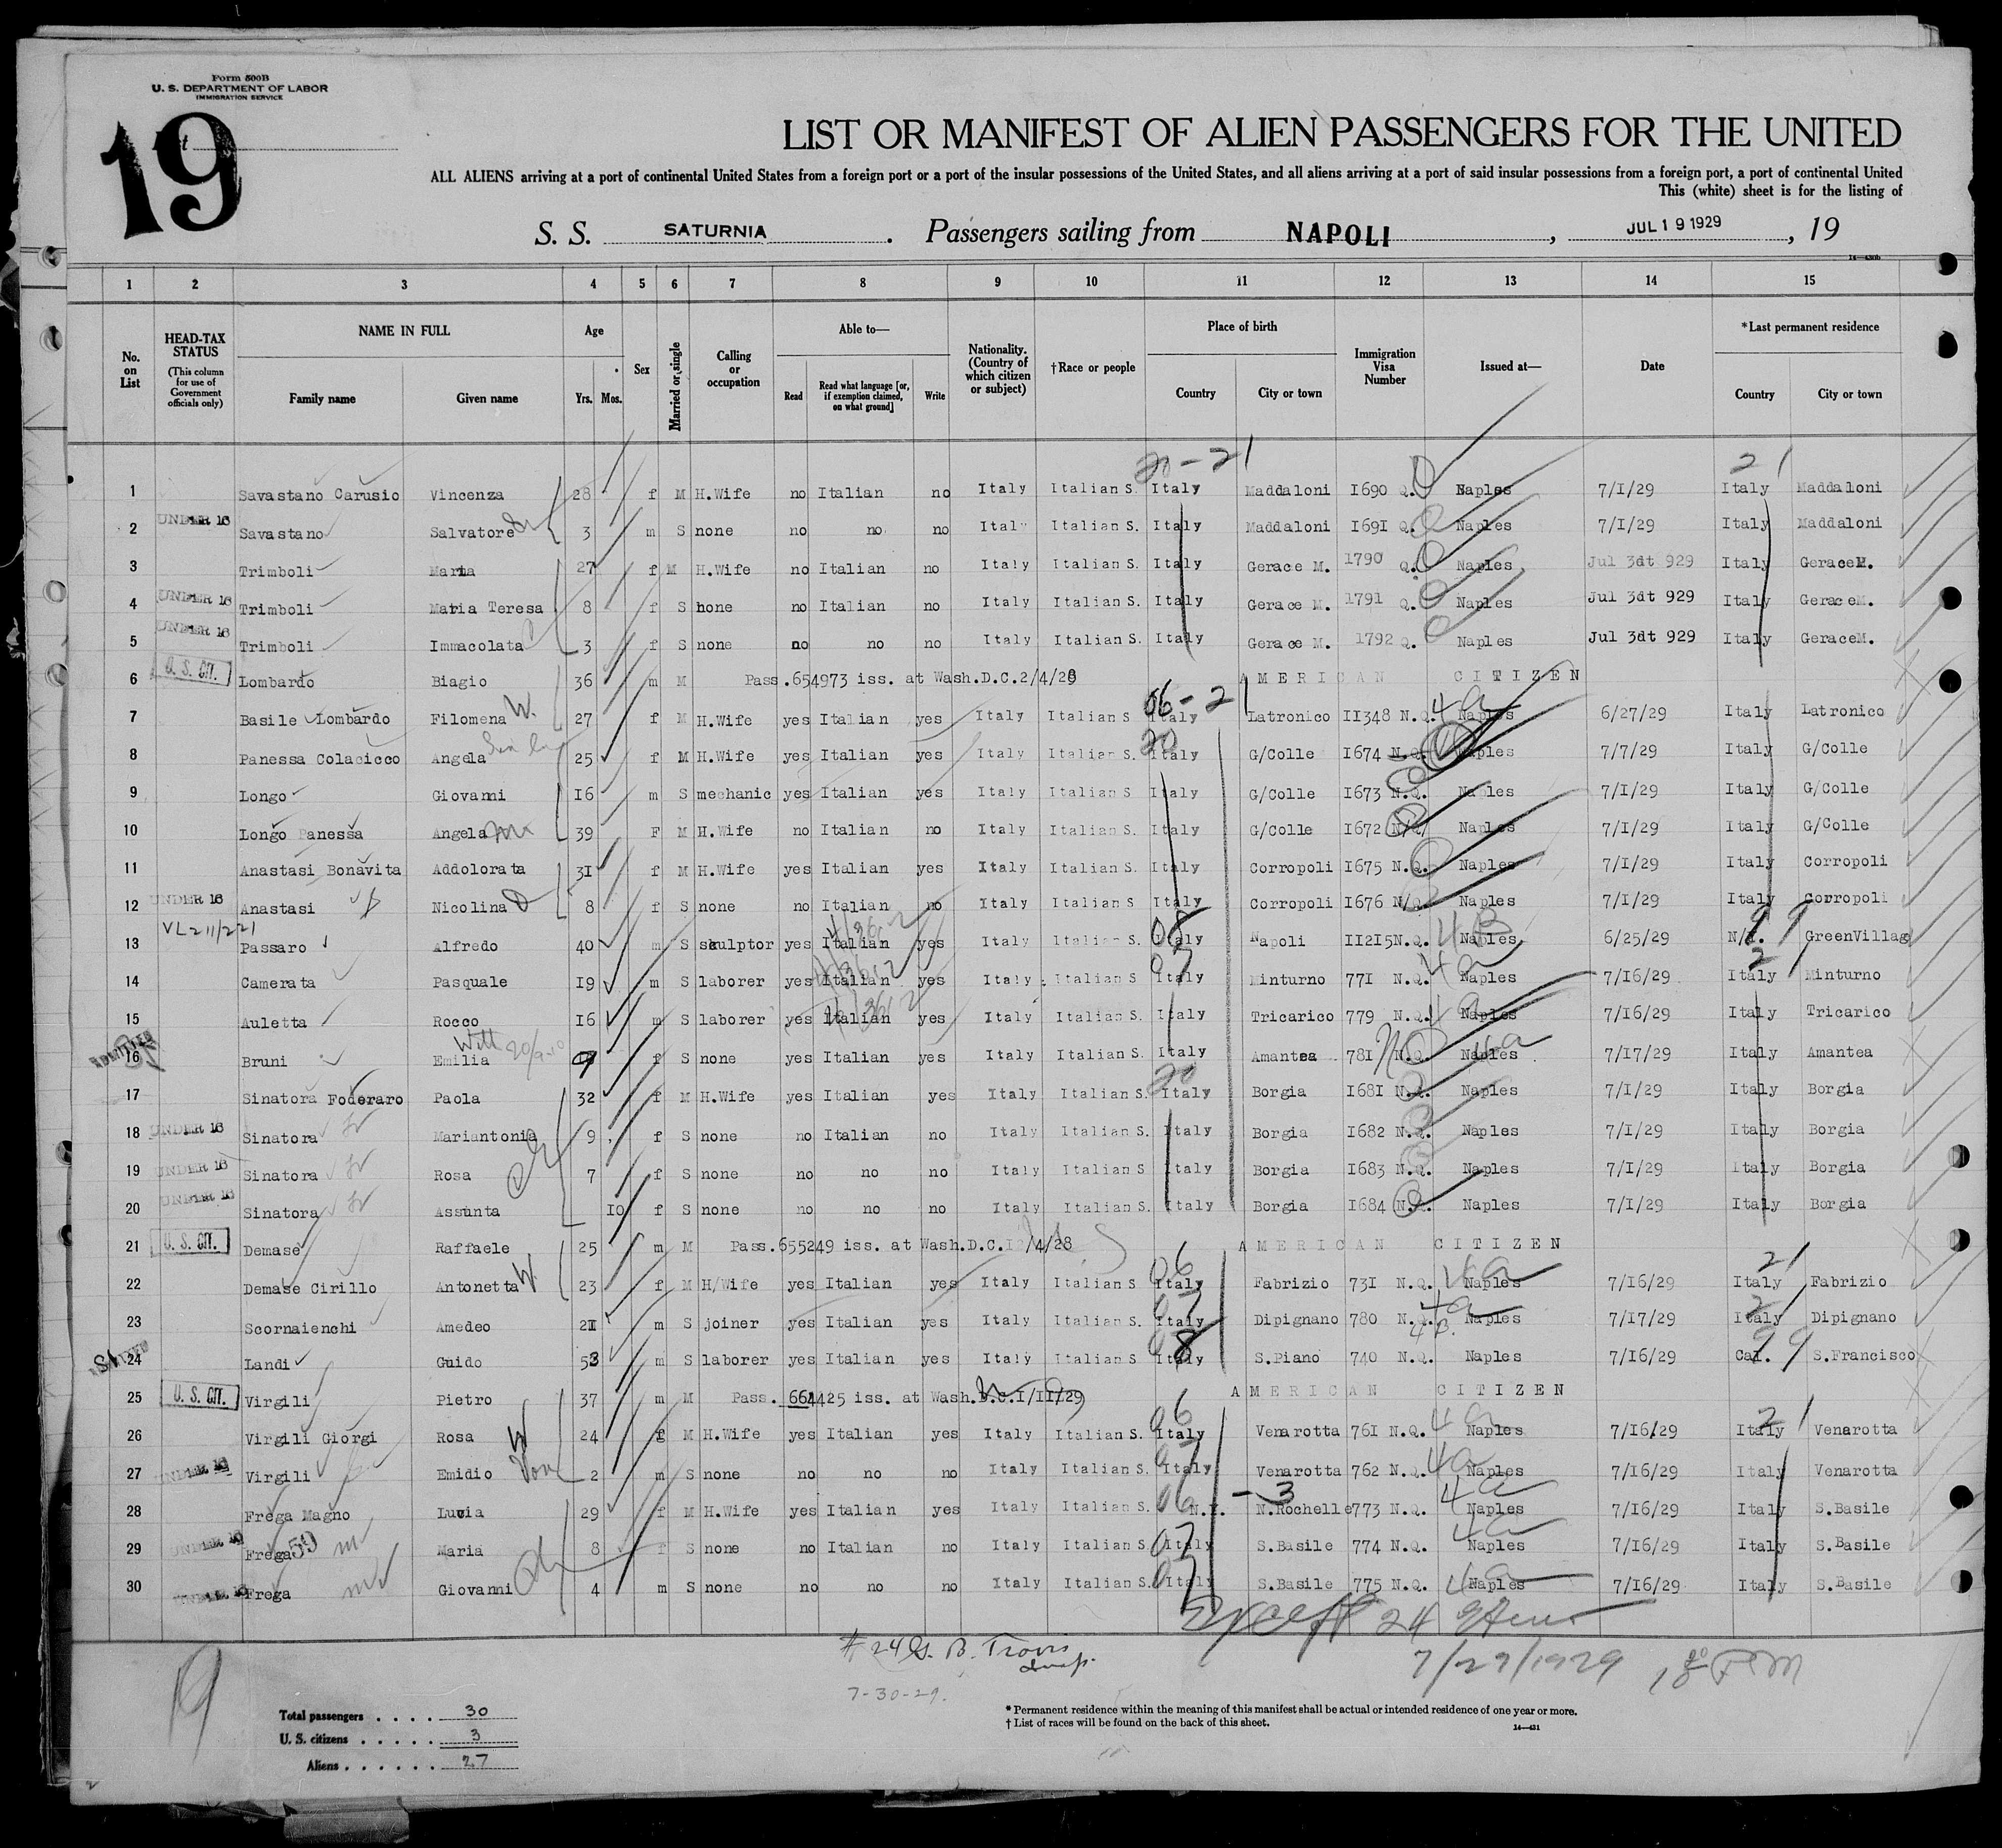 Form 500B
U. S. DEPARTMENT OF LABOR
IMMIGRATION SERVICE
19
LIST OR MANIFEST OF ALIEN PASSENGERS FOR THE UNITED
ALL ALIENS arriving at a port of continental United States from a foreign port or a port of the insular possessions of the United States, and all aliens arriving at a port of said insular possessions from a foreign port, a port of continental United
This (white) sheet is for the listing of
S. S. SATURNIA. Passengers sailing from NAPOLI, JUL 19 1929, 19
14—430b
1 2 3 4 5 6 7 8 9 10 11 12 13 14 15
No. on List
HEAD-TAX STATUS (This column for use of Government officials only)
NAME IN FULL Family name Given name
Age Yrs. Mos.
Sex
Married or single
Calling or occupation
Able to— Read Read what language [or, if exemption claimed, on what ground] Write
Nationality. (Country of which citizen or subject)
†Race or people
Place of birth Country City or town
Immigration Visa Number
Issued at—
Date
*Last permanent residence Country City or town
20-21 21
1 Savastano Carusio Vincenza 28 f M H.Wife no Italian no Italy Italian S. Italy Maddaloni 1690 Q. Naples 7/1/29 Italy Maddaloni
2 UNDER 16 Savastano Salvatore 3 m S none no no no Italy Italian S. Italy Maddaloni 1691 Q. Naples 7/1/29 Italy Maddaloni
3 Trimboli Maria 27 f M H.Wife no Italian no Italy Italian S. Italy Gerace M. 1790 Q. Naples Jul 3dt 929 Italy Gerace M.
4 UNDER 16 Trimboli Maria Teresa 8 f S none no Italian no Italy Italian S. Italy Gerace M. 1791 Q. Naples Jul 3dt 929 Italy Gerace M.
5 UNDER 16 Trimboli Immacolata 3 f S none no no no Italy Italian S. Italy Gerace M. 1792 Q. Naples Jul 3dt 929 Italy Gerace M.
6 U. S. CIT. Lombardo Biagio 36 m M Pass.654973 iss. at Wash.D.C.2/4/28 AMERICAN CITIZEN
7 Basile Lombardo Filomena W. 27 f M H.Wife yes Italian yes Italy Italian S 06-2 Italy Latronico 11348 N.Q. 4a Naples 6/27/29 Italy Latronico
8 Panessa Colacicco Angela 25 f M H.Wife yes Italian yes Italy Italian S. 20 Italy G/Colle 1674 N.Q. Naples 7/7/29 Italy G/Colle
9 Longo Giovanni 16 m S mechanic yes Italian yes Italy Italian S Italy G/Colle 1673 N.Q. Naples 7/1/29 Italy G/Colle
10 Longo Panessa Angela 39 F M H.Wife no Italian no Italy Italian S. Italy G/Colle 1672 N/Q/ Naples 7/1/29 Italy G/Colle
11 Anastasi Bonavita Addolorata 31 f M H.Wife yes Italian yes Italy Italian S. Italy Corropoli 1675 N.Q. Naples 7/1/29 Italy Corropoli
12 UNDER 16 Anastasi Nicolina 8 f S none no Italian no Italy Italian S Italy Corropoli 1676 N/Q. Naples 7/1/29 Italy Corropoli
13 Passaro Alfredo 40 m S skulptor yes Italian yes Italy Italian S. 08 Italy Napoli 11215N.Q. 4B Naples 6/25/29 99 GreenVillag
14 Camerata Pasquale 19 m S laborer yes Italian yes Italy Italian S. 07 Italy Minturno 771 N.Q. 4a Naples 7/16/29 Italy Minturno
15 Auletta Rocco 16 m S laborer yes Italian yes Italy Italian S. Italy Tricarico 779 N.Q. 4a Naples 7/16/29 Italy Tricarico
16 ADMITTED Bruni Emilia f S none yes Italian yes Italy Italian S. Italy Amantea 781 N.Q. 4a Naples 7/17/29 Italy Amantea
17 Sinatora Foderaro Paola 32 f M H.Wife yes Italian yes Italy Italian S. 20 Italy Borgia 1681 N.Q. Naples 7/1/29 Italy Borgia
18 UNDER 16 Sinatora Mariantonia 9 f S none no Italian no Italy Italian S. Italy Borgia 1682 N.Q. Naples 7/1/29 Italy Borgia
19 UNDER 16 Sinatora Rosa 7 f S none no no no Italy Italian S Italy Borgia 1683 N.Q. Naples 7/1/29 Italy Borgia
20 UNDER 16 Sinatora Assunta 10 f S none no no no Italy Italian S. Italy Borgia 1684 N.Q. Naples 7/1/29 Italy Borgia
21 U. S. CIT. Demase Raffaele 25 m M Pass.655249 iss. at Wash.D.C.12/4/28 AMERICAN CITIZEN
22 Demase Cirillo Antonetta W. 23 f M H/Wife yes Italian yes Italy Italian S 06 Italy Fabrizio 731 N.Q. 4a Naples 7/16/29 21 Italy Fabrizio
23 Scornaienchi Amedeo 21 m S joiner yes Italian yes Italy Italian S. 07 Italy Dipignano 780 N.Q. 4a Naples 7/17/29 Italy Dipignano
24 Landi Guido 53 m S laborer yes Italian yes Italy Italian S 08 Italy S.Piano 740 N.Q. 4B. Naples 7/16/29 Cal. 99 S.Francisco
25 U. S. CIT. Virgili Pietro 37 m M Pass. 664425 iss. at Wash.D.C.1/11/29 AMERICAN CITIZEN
26 Virgili Giorgi Rosa W 24 f M H.Wife yes Italian yes Italy Italian S. 06 Italy Venarotta 761 N.Q. 4a Naples 7/16/29 21 Italy Venarotta
27 UNDER 16 Virgili Emidio Son 2 m S none no no no Italy Italian S. 07 Italy Venarotta 762 N.Q. 4a Naples 7/16/29 Italy Venarotta
28 Frega Magno Lucia 29 f M H.Wife yes Italian yes Italy Italian S. 06 N.Y. -3 N.Rochelle 773 N.Q. 4a Naples 7/16/29 Italy S.Basile
29 UNDER 16 Frega 59 Maria 8 f S none no Italian no Italy Italian S. 07 Italy S.Basile 774 N.Q. 4a Naples 7/16/29 Italy S.Basile
30 UNDER 16 Frega Giovanni 4 m S none no no no Italy Italian S. 07 Italy S.Basile 775 N.Q. 4a Naples 7/16/29 Italy S.Basile
Except 24
#24 G. B. Travis Insp.
7/27/1929
7-30-29.
19
Total passengers . . . . 30
U. S. citizens . . . . . 3
Aliens . . . . . . 27
* Permanent residence within the meaning of this manifest shall be actual or intended residence of one year or more.
† List of races will be found on the back of this sheet.
14—431